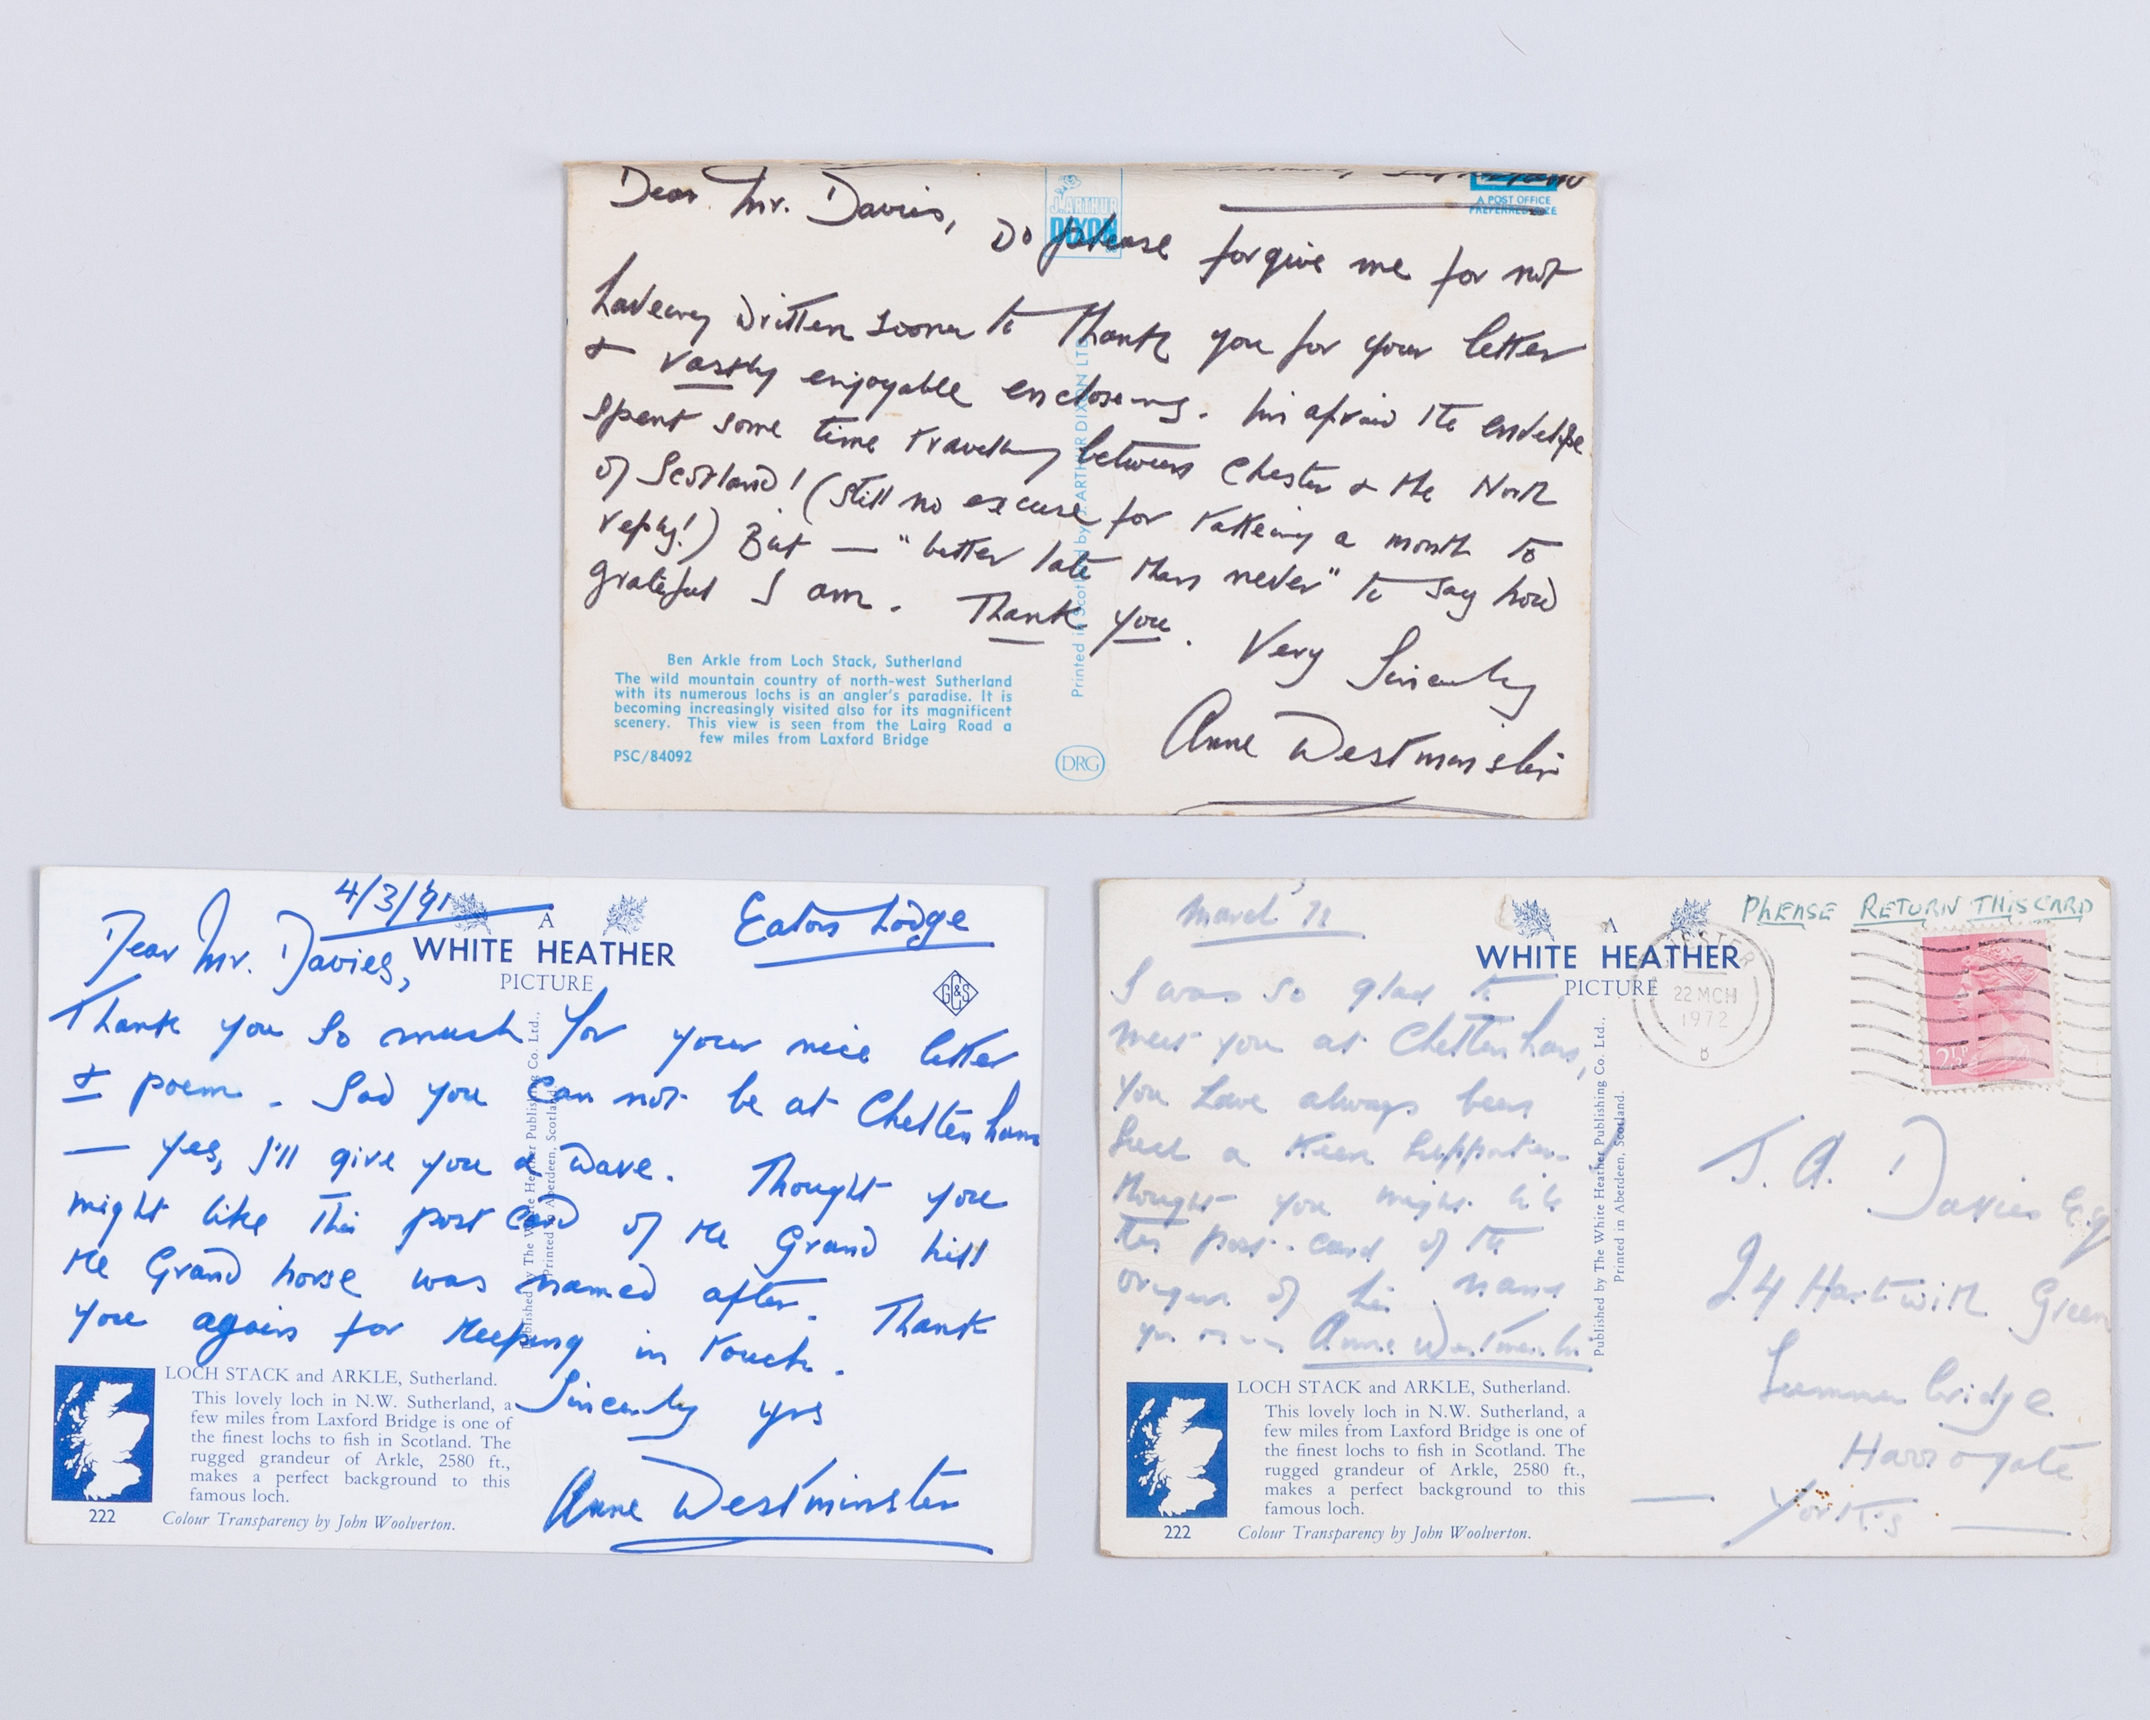 Dear Mr. Davies,
J. ARTHUR
DIXON
A POST OFFICE
PREFERRED SIZE
Do please forgive me for not
haveing written sooner to thank you for your letter
& vastly enjoyable encloseing. I'm afraid the envelope
spent some time travelling between Chester & the North
of Scotland! (Still no excuse for takeing a month to
reply!) But — "better late than never" to say how
grateful I am. Thank you.
Very Sincerely
Anne Westminster
Printed in Scotland by J. ARTHUR DIXON LTD.
Ben Arkle from Loch Stack, Sutherland
The wild mountain country of north-west Sutherland
with its numerous lochs is an angler's paradise. It is
becoming increasingly visited also for its magnificent
scenery. This view is seen from the Lairg Road a
few miles from Laxford Bridge
PSC/84092
DRG
4/3/91
Eaton Lodge
A
WHITE HEATHER
PICTURE
G&S
Dear Mr. Davies,
Thank you so much for your nice letter
& poem. Sad you can not be at Cheltenham
— yes, I'll give you a wave. Thought you
might like this post card of the Grand hill
the Grand horse was named after. Thank
you again for keeping in touch.
Sincerely yrs
Anne Westminster
Published by The White Heather Publishing Co. Ltd.,
Printed in Aberdeen, Scotland.
LOCH STACK and ARKLE, Sutherland.
This lovely loch in N.W. Sutherland, a
few miles from Laxford Bridge is one of
the finest lochs to fish in Scotland. The
rugged grandeur of Arkle, 2580 ft.,
makes a perfect background to this
famous loch.
222
Colour Transparency by John Woolverton.
March 72
A
WHITE HEATHER
PICTURE
PLEASE RETURN THIS CARD
22 MCH
1972
B
2½P
I was so glad to
meet you at Cheltenham,
you have always been
such a keen supporter.
thought you might like
this post-card of the
origin of his name
Anne Westminster
J. A. Davies Esq
24 Hartwith Green
Summerbridge
Harrogate
— Yorks —
Published by The White Heather Publishing Co. Ltd.,
Printed in Aberdeen, Scotland.
LOCH STACK and ARKLE, Sutherland.
This lovely loch in N.W. Sutherland, a
few miles from Laxford Bridge is one of
the finest lochs to fish in Scotland. The
rugged grandeur of Arkle, 2580 ft.,
makes a perfect background to this
famous loch.
222
Colour Transparency by John Woolverton.